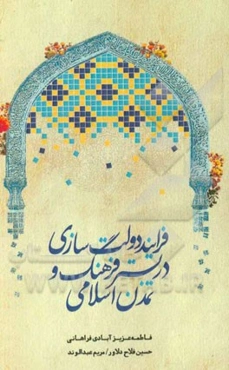 فرایند دولت سازی
در بستر فرهنگ و
تمدن اسلامی
فاطمه عزیزآبادی فراهانی
حسین فلاح دلاور/مریم عبدالوند